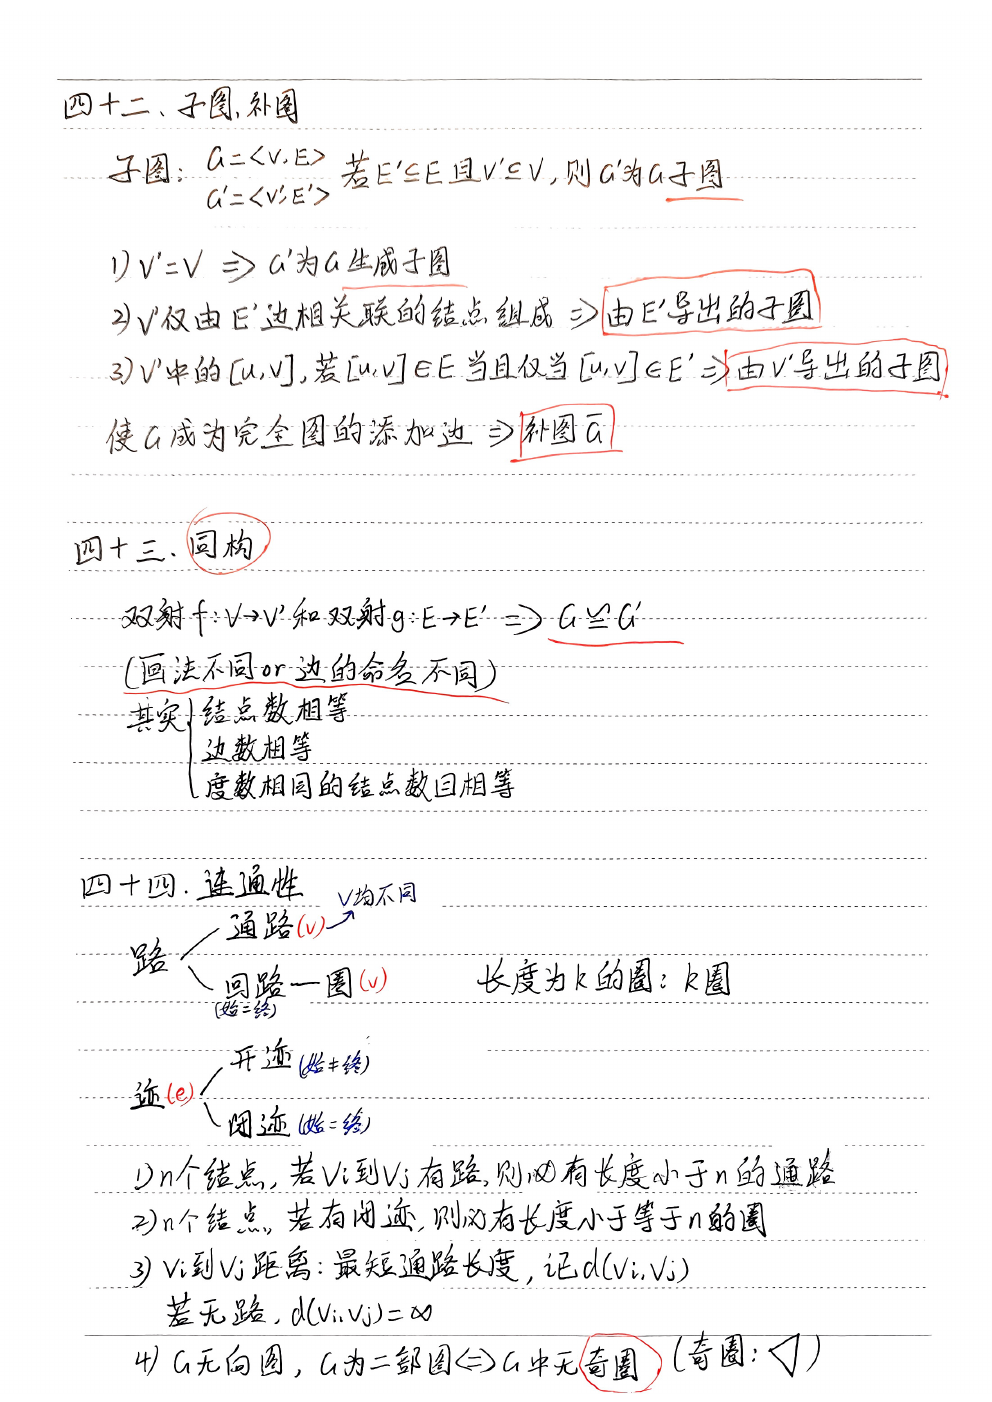 四十二、子图、补图
子图: G=<V,E> G'=<V',E'> 若E'⊆E且V'⊆V,则G'为G子图
1) V'=V ⇒ G'为G生成子图
2) V'仅由E'边相关联的结点组成 ⇒ 由E'导出的子图
3) V'中的[u,v],若[u,v]∈E当且仅当[u,v]∈E' ⇒ 由V'导出的子图
使G成为完全图的添加边 ⇒ 补图G̅
四十三、同构
双射f:V→V'和双射g:E→E' ⇒ G≌G'
(画法不同or边的命名不同)
其实{结点数相等
边数相等
度数相同的结点数目相等
四十四.连通性
V均不同
通路(v)
路
回路—圈(v) 长度为k的圈: k圈
(始=终)
开迹(始≠终)
迹(e)
闭迹(始=终)
1) n个结点,若Vi到Vj有路,则必有长度小于n的通路
2) n个结点,若有闭迹,则必有长度小于等于n的圈
3) Vi到Vj距离:最短通路长度,记d(Vi,Vj)
若无路,d(Vi,Vj)=∞
4) G无向图,G为二部图⇔G中无奇圈 (奇圈: )